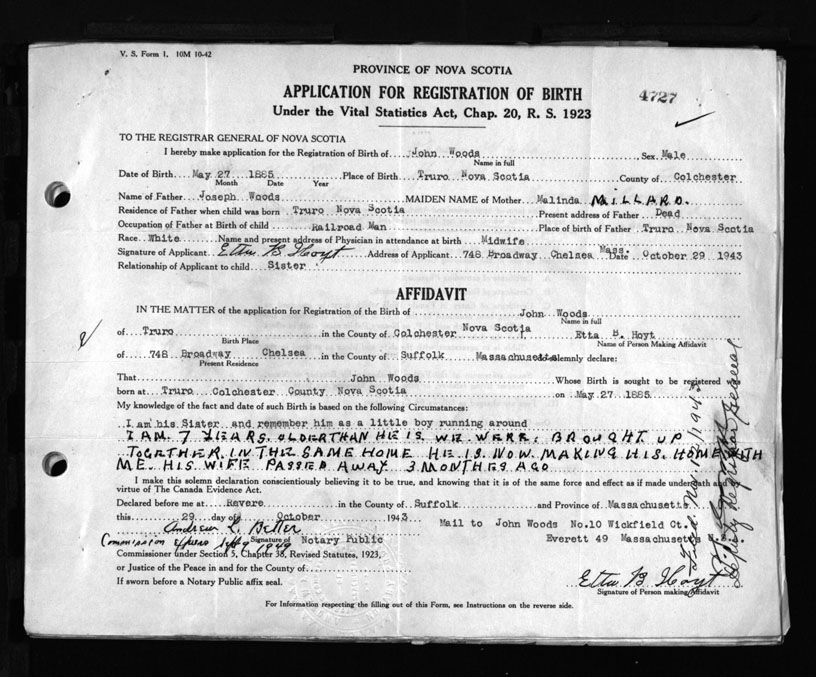 V. S. Form 1. 10M 10-42
PROVINCE OF NOVA SCOTIA
APPLICATION FOR REGISTRATION OF BIRTH
4727
Under the Vital Statistics Act, Chap. 20, R. S. 1923
TO THE REGISTRAR GENERAL OF NOVA SCOTIA
I hereby make application for the Registration of Birth of John Woods Sex Male
Name in full
Date of Birth May 27 1885 Place of Birth Truro Nova Scotia County of Colchester
Month Date Year
Name of Father Joseph Woods MAIDEN NAME of Mother Malinda MILLARD.
Residence of Father when child was born Truro Nova Scotia Present address of Father Dead
Occupation of Father at Birth of child Railroad Man Place of birth of Father Truro Nova Scotia
Race White Name and present address of Physician in attendance at birth Midwife
Signature of Applicant Etta B Hoyt Address of Applicant 748 Broadway Chelsea Mass. Date October 29 1943
Relationship of Applicant to child Sister
AFFIDAVIT
IN THE MATTER of the application for Registration of the Birth of John Woods
Name in full
of Truro in the County of Colchester Nova Scotia Etta B. Hoyt
Birth Place Name of Person Making Affidavit
of 748 Broadway Chelsea in the County of Suffolk Massachusetts solemnly declare:
Present Residence
That John Woods Whose Birth is sought to be registered was
born at Truro Colchester County Nova Scotia on May 27 1885
My knowledge of the fact and date of such Birth is based on the following Circumstances:
I am his Sister and remember him as a little boy running around
I AM 7 YEARS OLDER THAN HE IS WE WERE BROUGHT UP
TOGETHER IN THE SAME HOME HE IS NOW MAKING HIS HOME WITH
ME. HIS WIFE PASSED AWAY 3 MONTHES AGO
I make this solemn declaration conscientiously believing it to be true, and knowing that it is of the same force and effect as if made under oath and
virtue of The Canada Evidence Act.
Declared before me at Revere in the County of Suffolk and Province of Massachusetts
this 29 day of October 1943 Mail to John Woods No.10 Wickfield Ct.
Everett 49 Massachusetts
Signature of Notary Public
Commission expires Sept 9 1949
Commissioner under Section 5, Chapter 38, Revised Statutes, 1923,
or Justice of the Peace in and for the County of
If sworn before a Notary Public affix seal.
Etta B Hoyt
Signature of Person making Affidavit
For Information respecting the filling out of this Form, see Instructions on the reverse side.
Filed. Nov. 12/1943
Deputy Registrar General